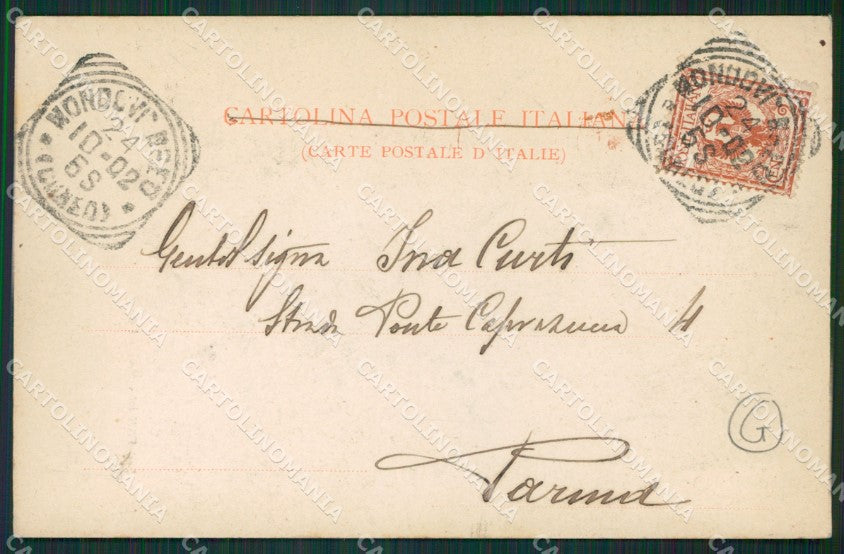 CARTOLINA POSTALE ITALIANA
(CARTE POSTALE D'ITALIE)
MONDOVI'
24
10-02
6S
(CUNEO)
MONDOVI'
24
10-02
6S
Gentil Signa Ina Curti
Strada Ponte Caprazucca 4
Parma
G
CARTOLINOMANIA